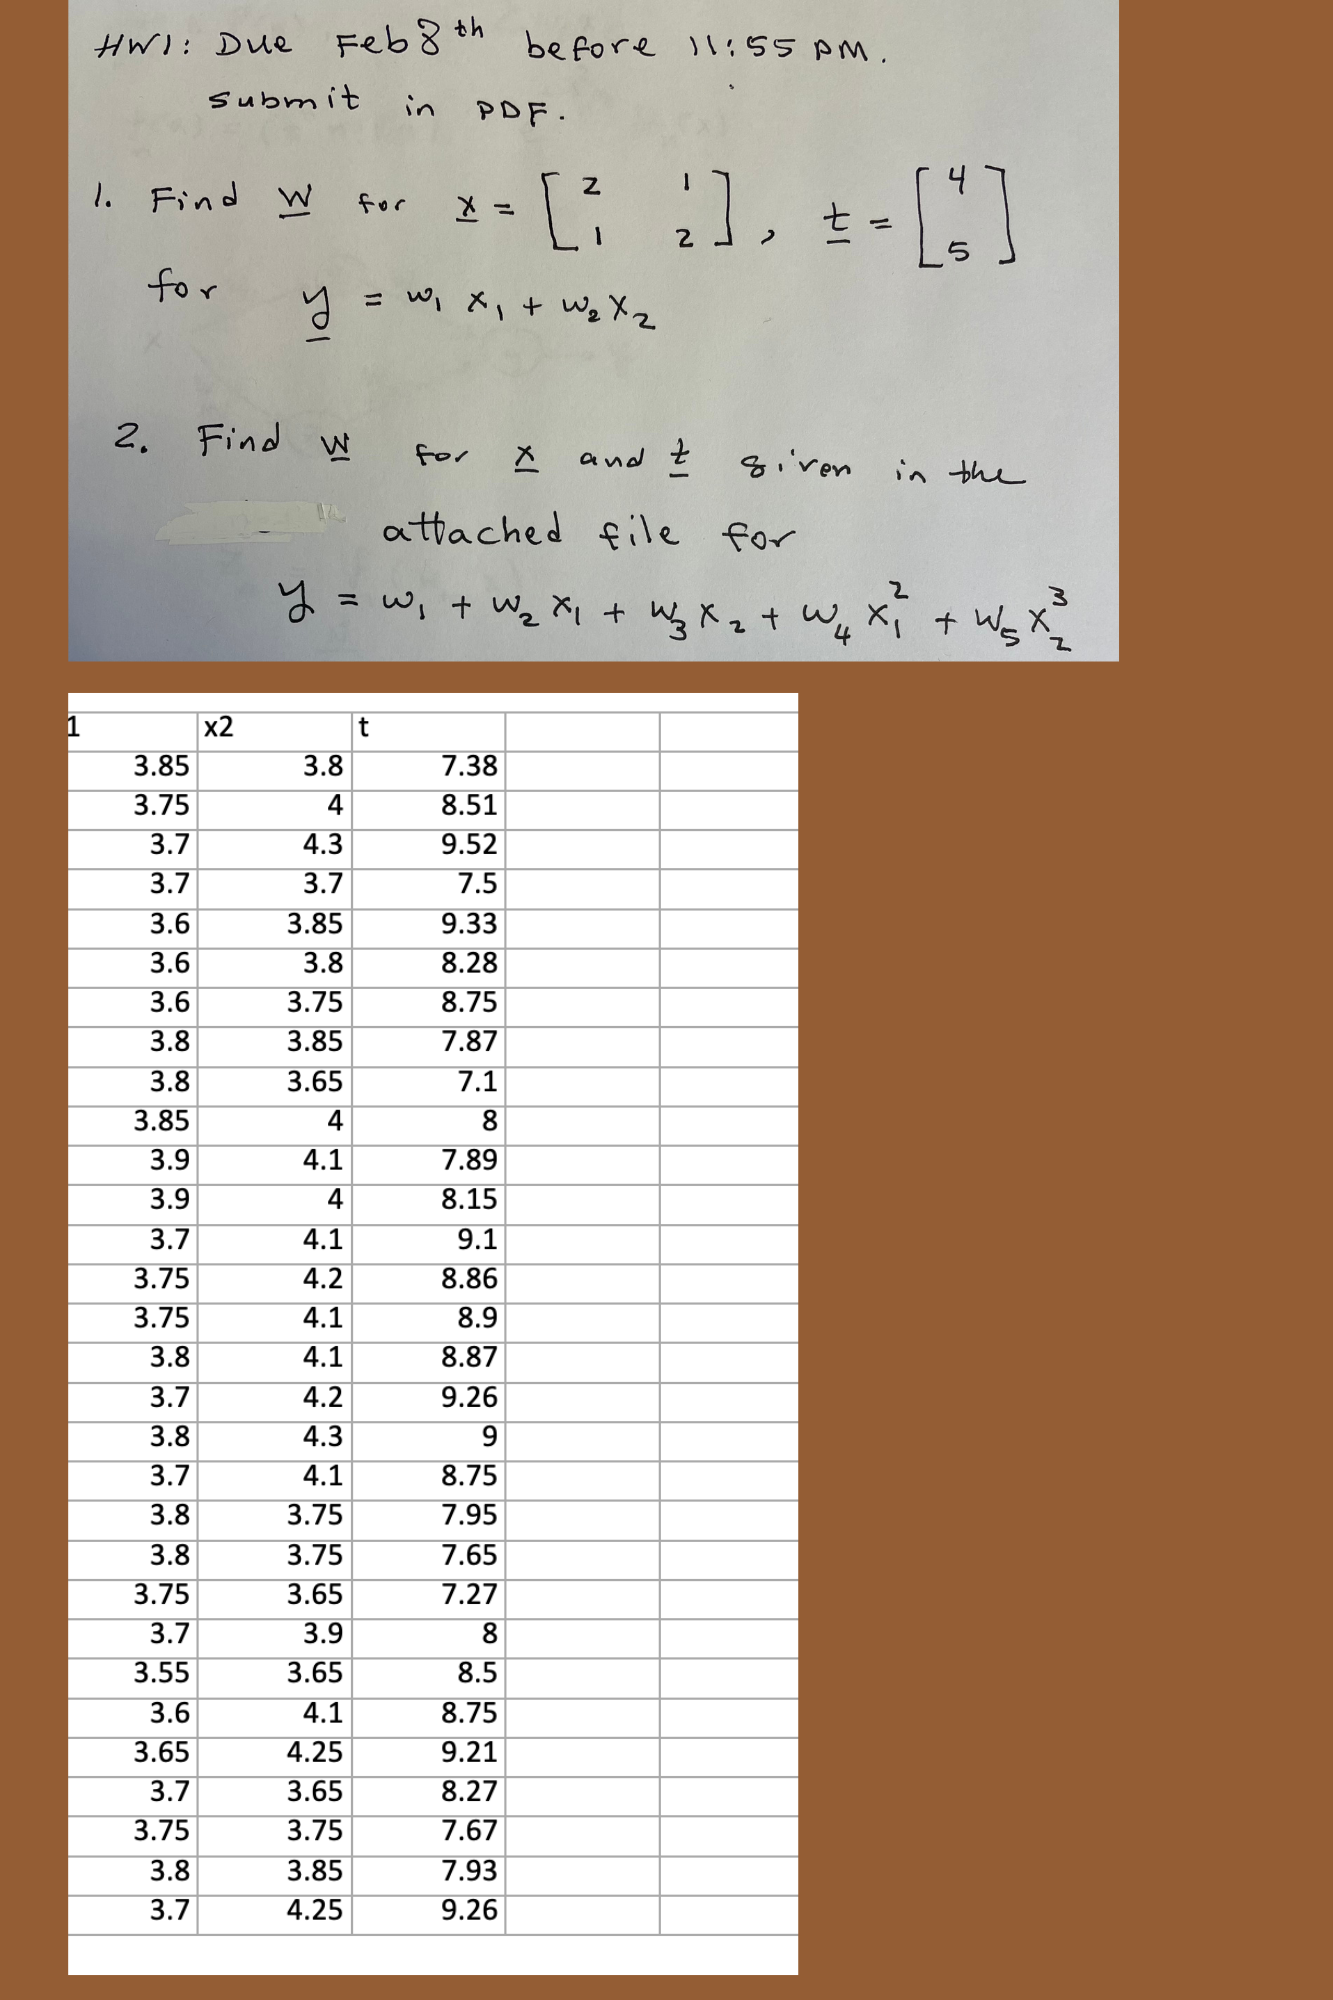 HW1: Due Feb 8th before 11:55 PM.
submit in PDF.
1. Find w for x = [2 1
1 2], t = [4
5]
for y = w1 x1 + w2 x2
2. Find w for x and t given in the
attached file for
y = w1 + w2 x1 + w3 x2 + w4 x1² + w5 x2³
1 x2 t
3.85 3.8 7.38
3.75 4 8.51
3.7 4.3 9.52
3.7 3.7 7.5
3.6 3.85 9.33
3.6 3.8 8.28
3.6 3.75 8.75
3.8 3.85 7.87
3.8 3.65 7.1
3.85 4 8
3.9 4.1 7.89
3.9 4 8.15
3.7 4.1 9.1
3.75 4.2 8.86
3.75 4.1 8.9
3.8 4.1 8.87
3.7 4.2 9.26
3.8 4.3 9
3.7 4.1 8.75
3.8 3.75 7.95
3.8 3.75 7.65
3.75 3.65 7.27
3.7 3.9 8
3.55 3.65 8.5
3.6 4.1 8.75
3.65 4.25 9.21
3.7 3.65 8.27
3.75 3.75 7.67
3.8 3.85 7.93
3.7 4.25 9.26